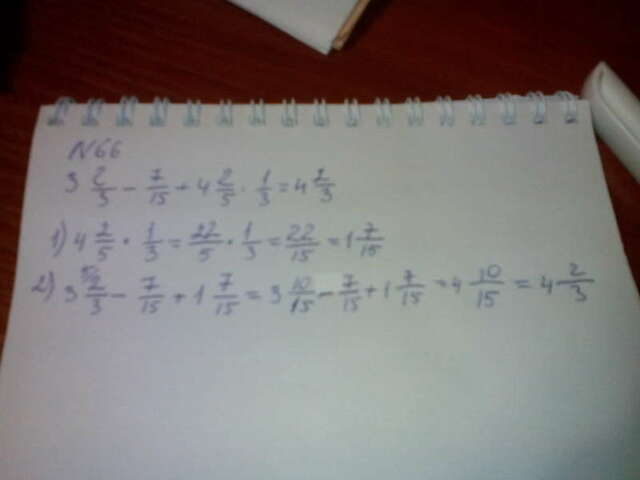 N66
3 2/3 - 7/15 + 4 2/5 · 1/3 = 4 2/3
1) 4 2/5 · 1/3 = 22/5 · 1/3 = 22/15 = 1 7/15
2) 3 2/3 - 7/15 + 1 7/15 = 3 10/15 - 7/15 + 1 7/15 = 4 10/15 = 4 2/3